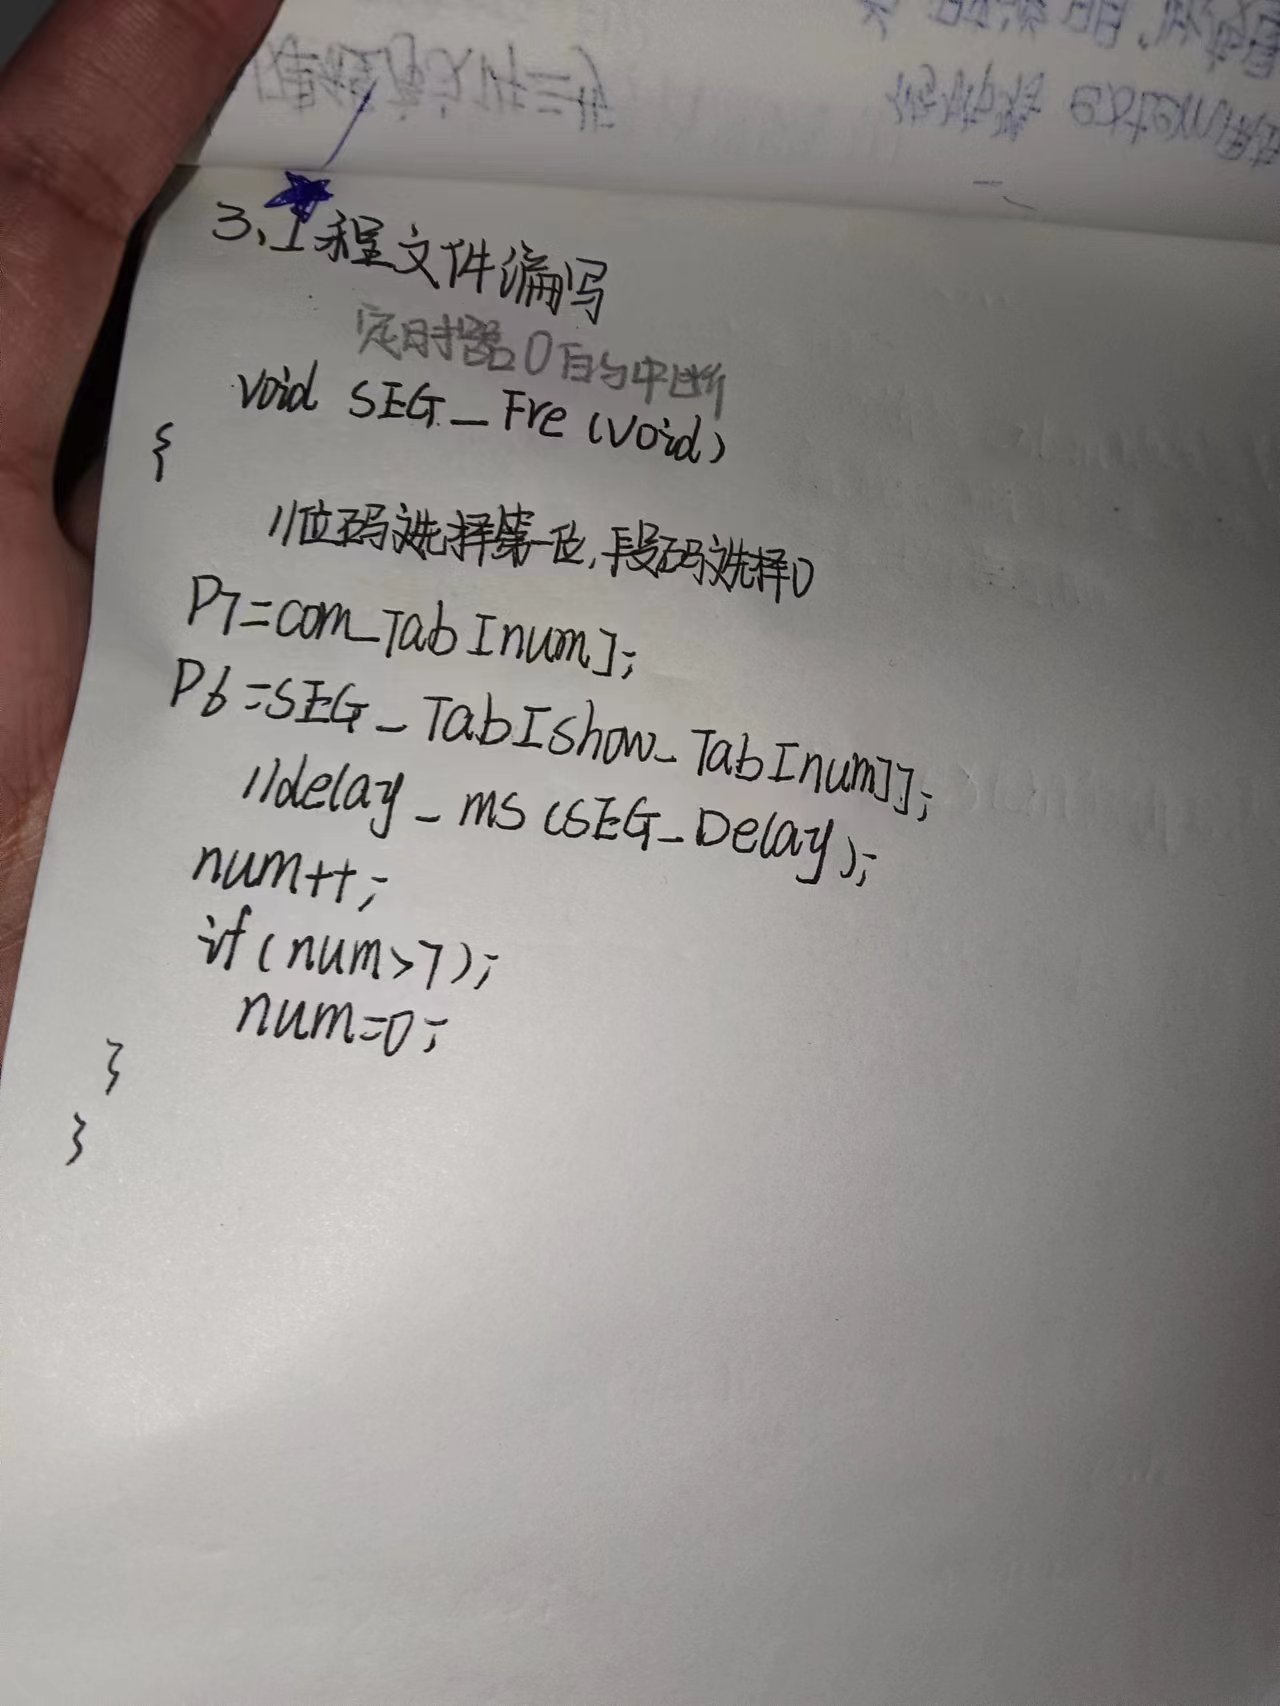 3、工程文件编写
定时器0的中断
void SEG_Fre (void)
{
//位码选择第一位,段码选择0
P7=com_Tab[num];
P6=SEG_Tab[show_Tab[num]];
//delay_ms(SEG_Delay);
num++;
if(num>7);
num=0;
}
}